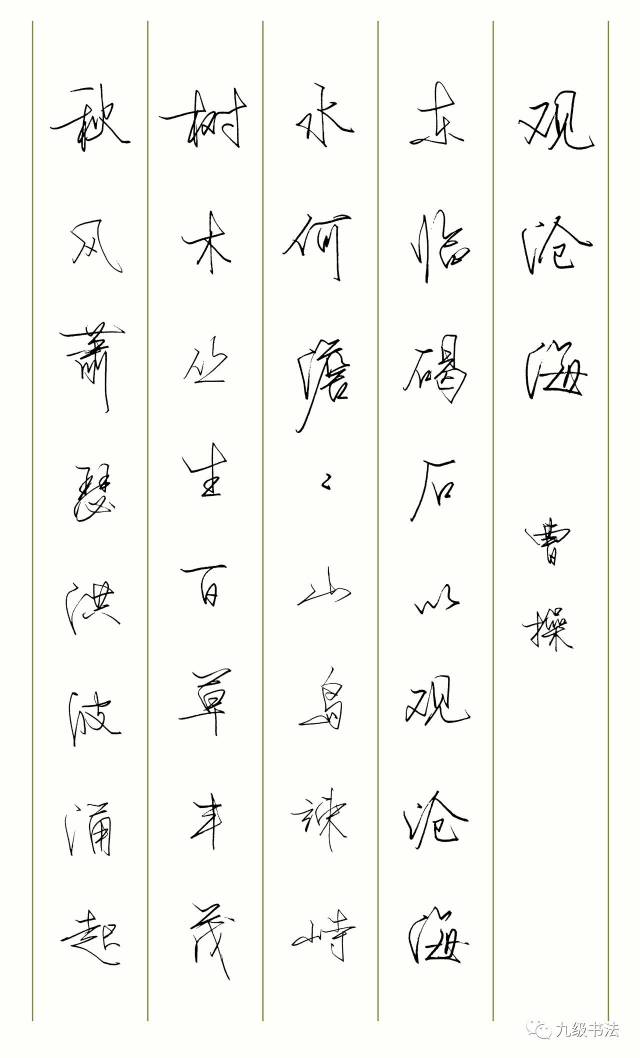 观沧海 曹操
东临碣石以观沧海
水何澹〻山岛竦峙
树木丛生百草丰茂
秋风蕭瑟洪波涌起
九级书法